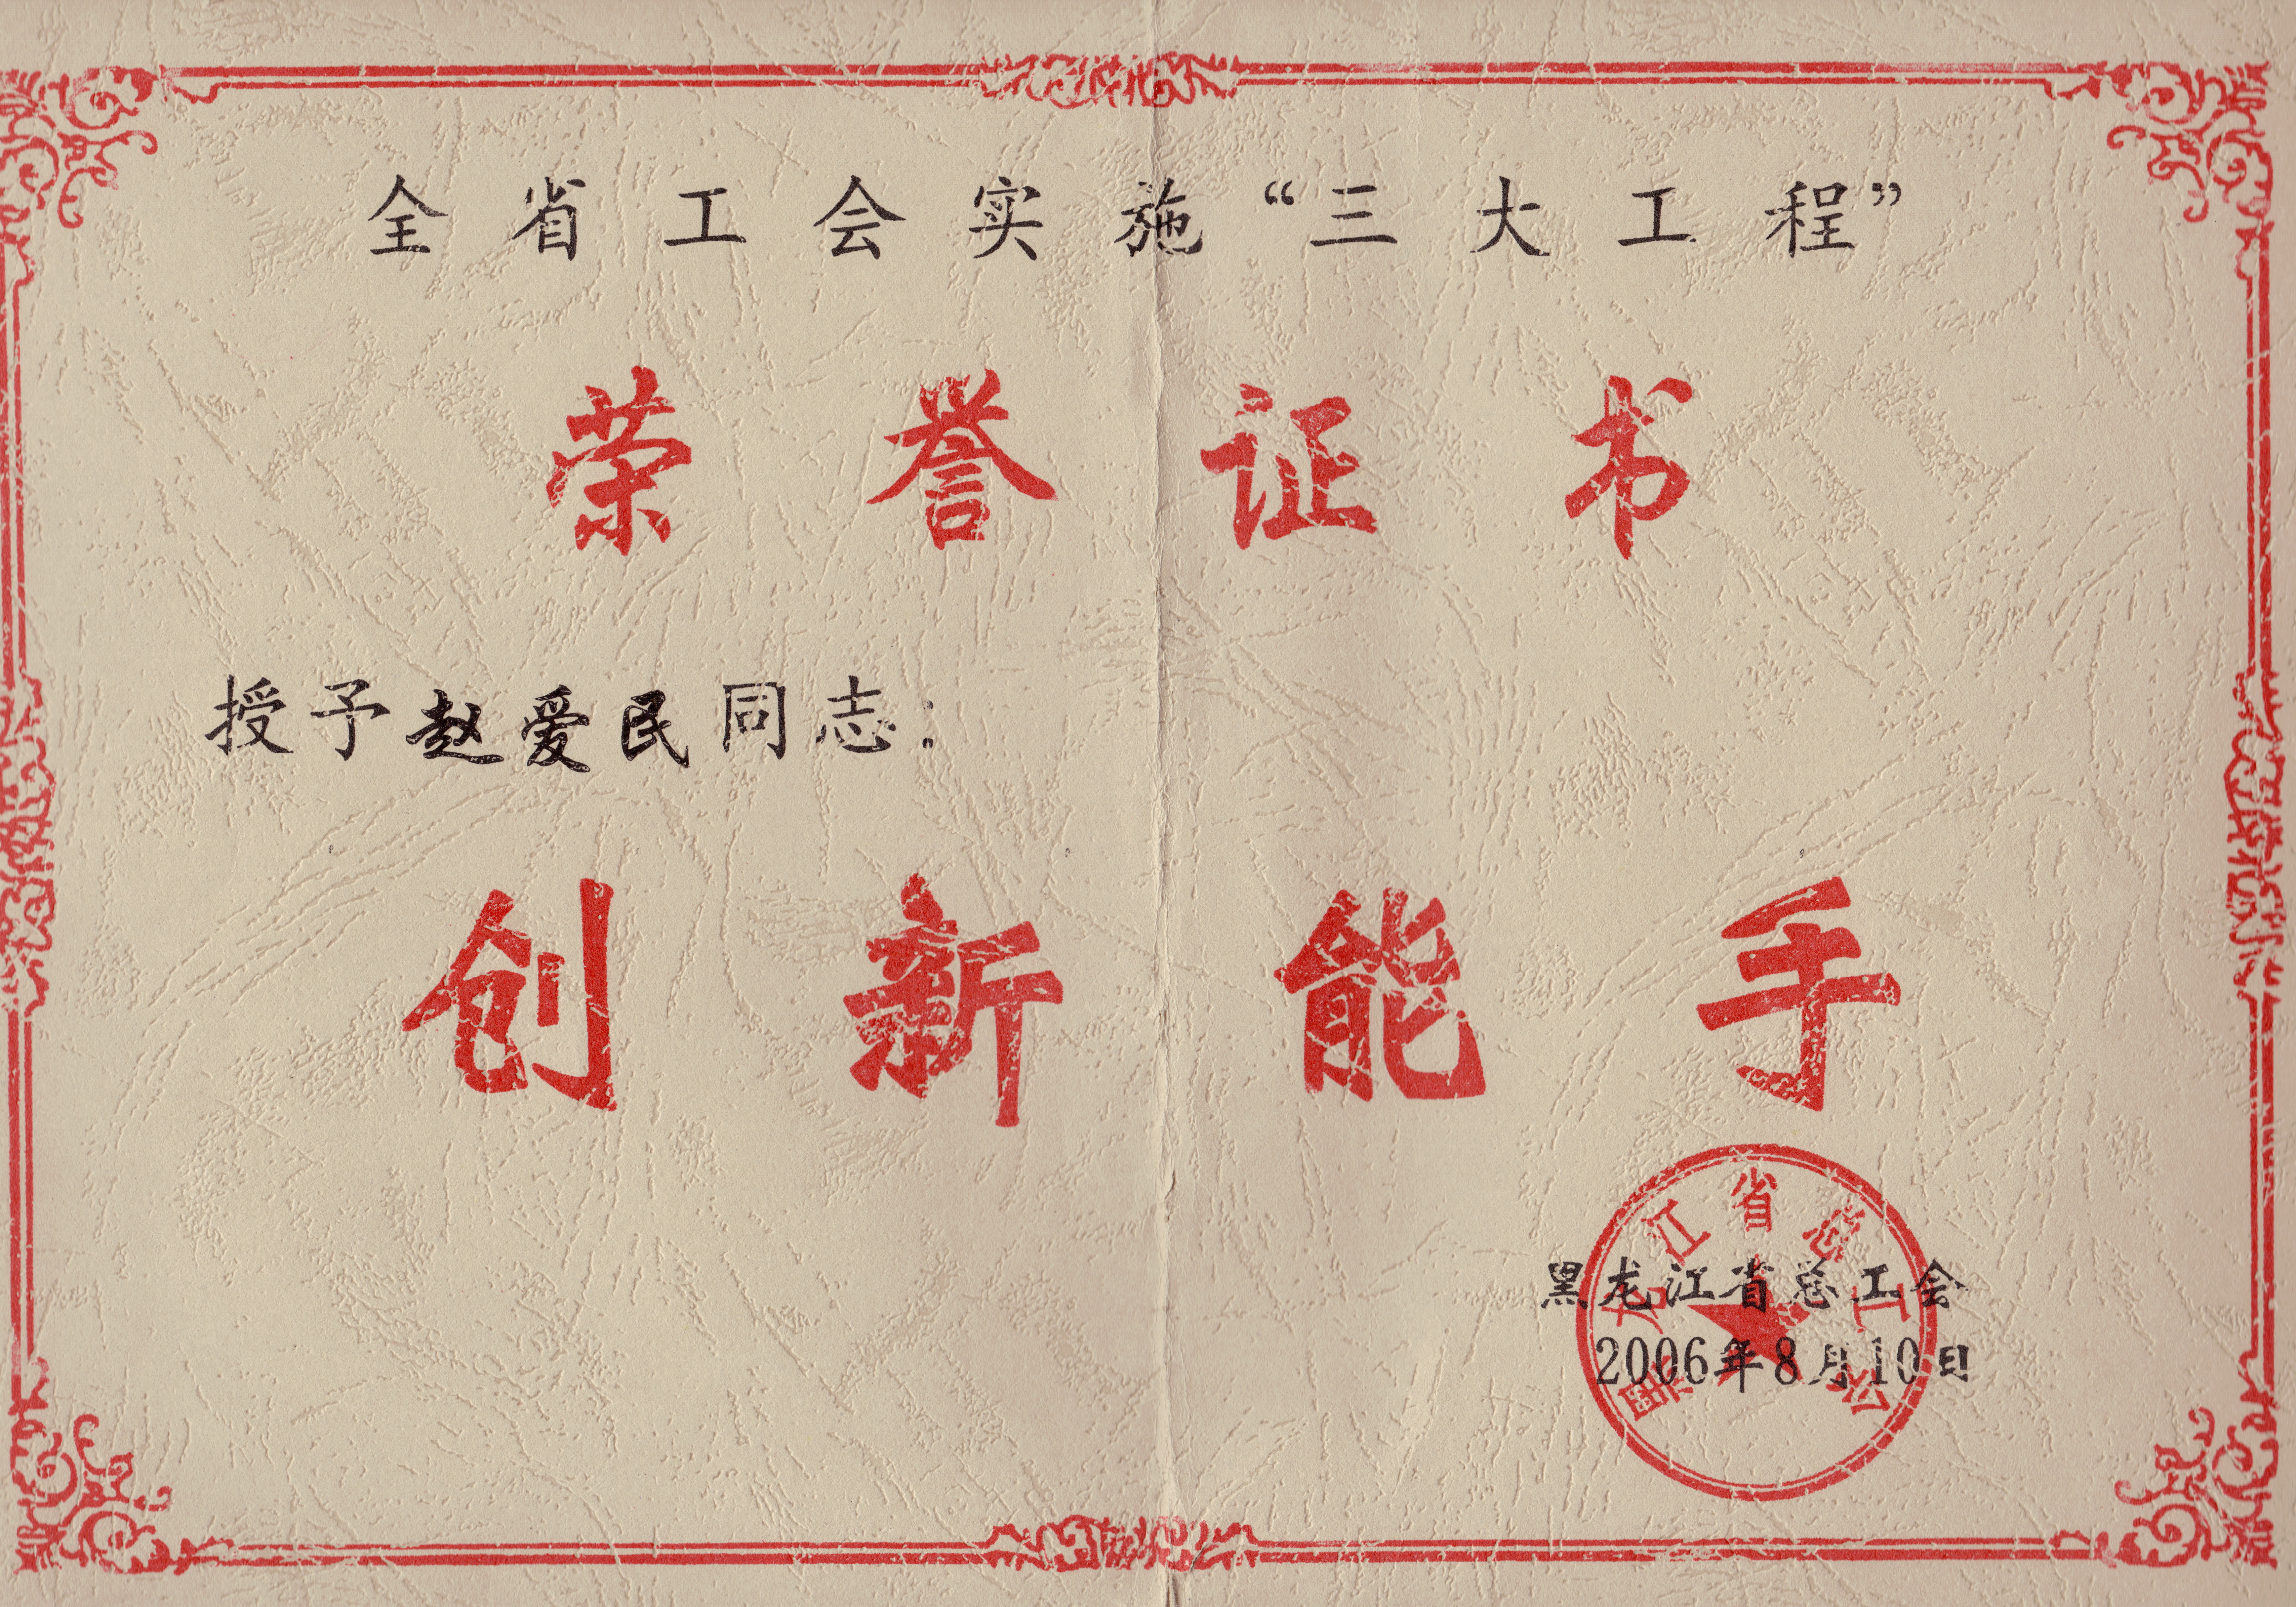 全省工会实施“三大工程”
荣誉证书
授予赵爱民同志：
创新能手
黑龙江省总工会
黑龙江省总工会
2006年8月10日